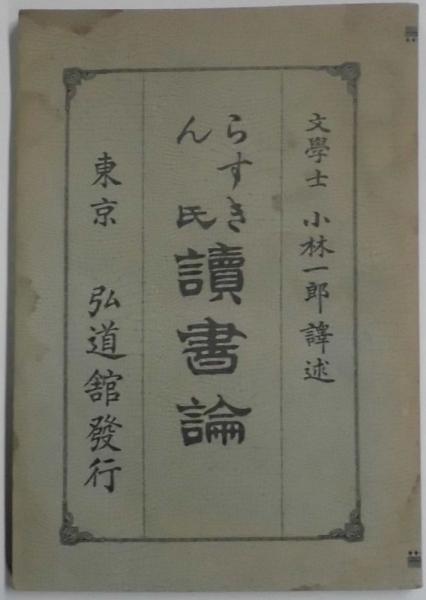 文學士 小林一郎 譯述
らすきん氏 讀書論
東京 弘道館發行